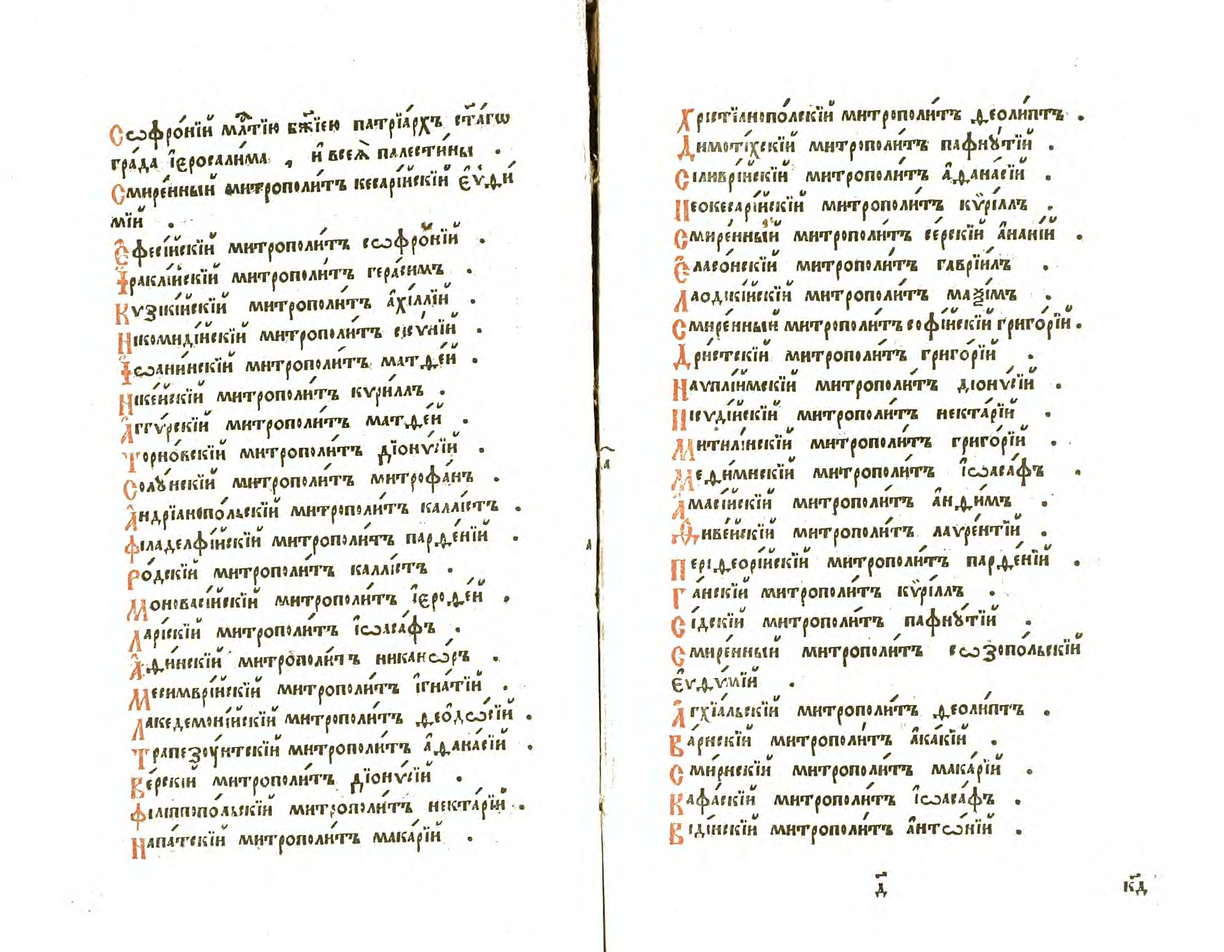 Сѡфро́нїй мл҃тїю бж҃їею патрїа́рхъ ст҃а́гѡ
гра́да і҆еросали́ма , и҆ всеѧ̀ палести́ны .
Смире́нный митрополи́тъ кесарі́йскїй є҆ѵѳи́
мїй .
Є҆фесі́йскїй митрополи́тъ сѡфро́нїй .
І҆раклі́йскїй митрополи́тъ гера́симъ .
Кѵзікі́йскїй митрополи́тъ а҆хі́ллїй .
Нікомиді́йскїй митрополи́тъ
І҆ѡани́нскїй митрополи́тъ матѳе́й .
Ніке́йскїй митрополи́тъ кѵри́ллъ .
А҆ггѵ́рскїй митрополи́тъ матѳе́й .
Торно́вскїй митрополи́тъ дїонѵ́сїй .
Солꙋ́нскїй митрополи́тъ митрофа́нъ .
А҆ндрїанопо́льскїй митрополи́тъ каллі́стъ .
Філаделфі́йскїй митрополи́тъ парѳе́нїй .
Ро́дскїй митрополи́тъ каллі́стъ .
Моновасі́йскїй митрополи́тъ і҆ероѳе́й .
Ларі́скїй митрополи́тъ і҆ѡаса́фъ .
А҆ѳи́нскїй митрополи́тъ никанѡ́ръ .
Месимврі́йскїй митрополи́тъ і҆гна́тїй .
Лакедемоні́йскїй митрополи́тъ ѳеодѡ́сїй .
Трапезоу́нтскїй митрополи́тъ а҆ѳана́сїй .
Ве́рскїй митрополи́тъ дїонѵ́сїй .
Філіппопо́льскїй митрополи́тъ некта́рїй .
Напа́тскїй митрополи́тъ мака́рїй .
Хрістїанопо́лскїй митрополи́тъ ѳеоли́птъ .
Димоті́хскїй митрополи́тъ пафнꙋ́тїй .
Сіливрі́йскїй митрополи́тъ а҆ѳана́сїй .
Неокесарі́йскїй митрополи́тъ кѵ́ріллъ .
Смире́нный митрополи́тъ се́рскїй а҆на́нїй .
Є҆ласо́нскїй митрополи́тъ гаврїи́лъ .
Лаодікі́йскїй митрополи́тъ маѯі́мъ .
Смире́нный митрополи́тъ софі́йскїй григо́рїй .
Дри́стскїй митрополи́тъ григо́рїй .
Наѵплі́имскїй митрополи́тъ дїонѵ́сїй .
Писѵді́йскїй митрополи́тъ некта́рїй .
Митилі́нскїй митрополи́тъ григо́рїй .
Меѳи́мнскїй митрополи́тъ і҆ѡаса́фъ .
А҆масі́йскїй митрополи́тъ а҆нѳи́мъ .
Ѳиве́йскїй митрополи́тъ лаѵре́нтїй .
Періѳеорі́йскїй митрополи́тъ парѳе́нїй .
Га́нскїй митрополи́тъ кѵ́ріллъ .
Сі́дскїй митрополи́тъ пафнꙋ́тїй .
Смире́нный митрополи́тъ сѡзопо́льскїй
є҆ѵѳѵ́мїй .
А҆гхїа́льскїй митрополи́тъ ѳеоли́птъ .
Ва́рнскїй митрополи́тъ а҆ка́кїй .
Сми́рнскїй митрополи́тъ мака́рїй .
Кафа́скїй митрополи́тъ і҆ѡаса́фъ .
Віди́нскїй митрополи́тъ а҆нтѡ́нїй .
д҃ к҃д